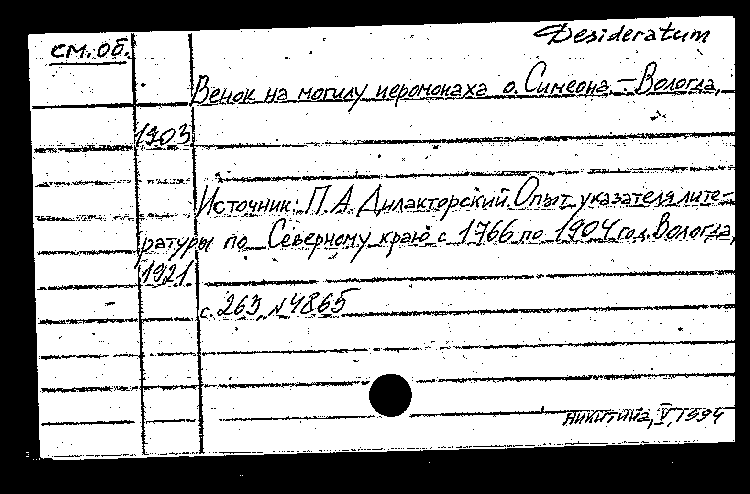 Desideratum
см. об.
Венок на могилу иеромонаха о. Симеона. – Вологда,
1903
Источник: П. А. Дилакторский. Опыт указателя лите-
ратуры по Северному краю с 1766 по 1904 год. Вологда,
1921.
с. 263, N 4865
Никитина, V, 1994